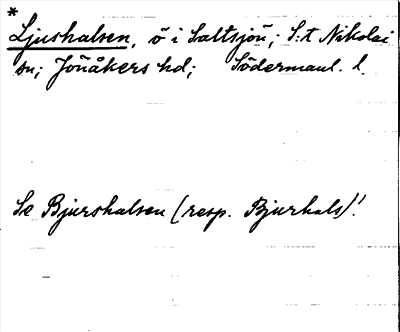 *
Ljushalsen, ö i Saltsjön; S:t Nikolai
sn; Jönåkers hd; Södermanl. l.
Se Bjurshalsen (resp. Bjurhals)!